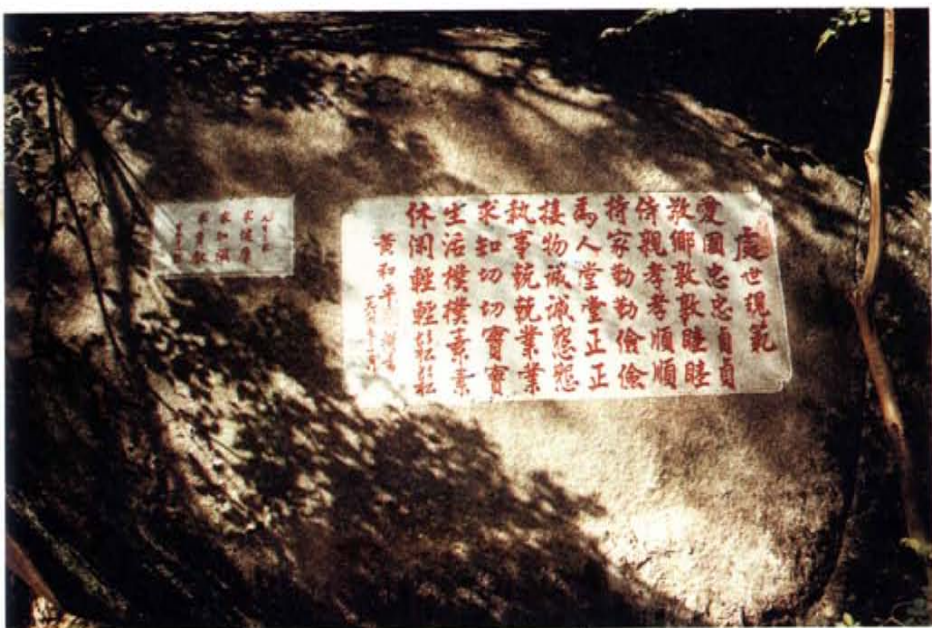 處世規範
愛國忠忠貞貞
敬鄉敦敦睦睦
侍親孝孝順順
持家勤勤儉儉
爲人堂堂正正
接物诚诚懇懇
執事兢兢業業
求知切切實實
生活樸樸素素
休閑輕輕鬆鬆
黄和平